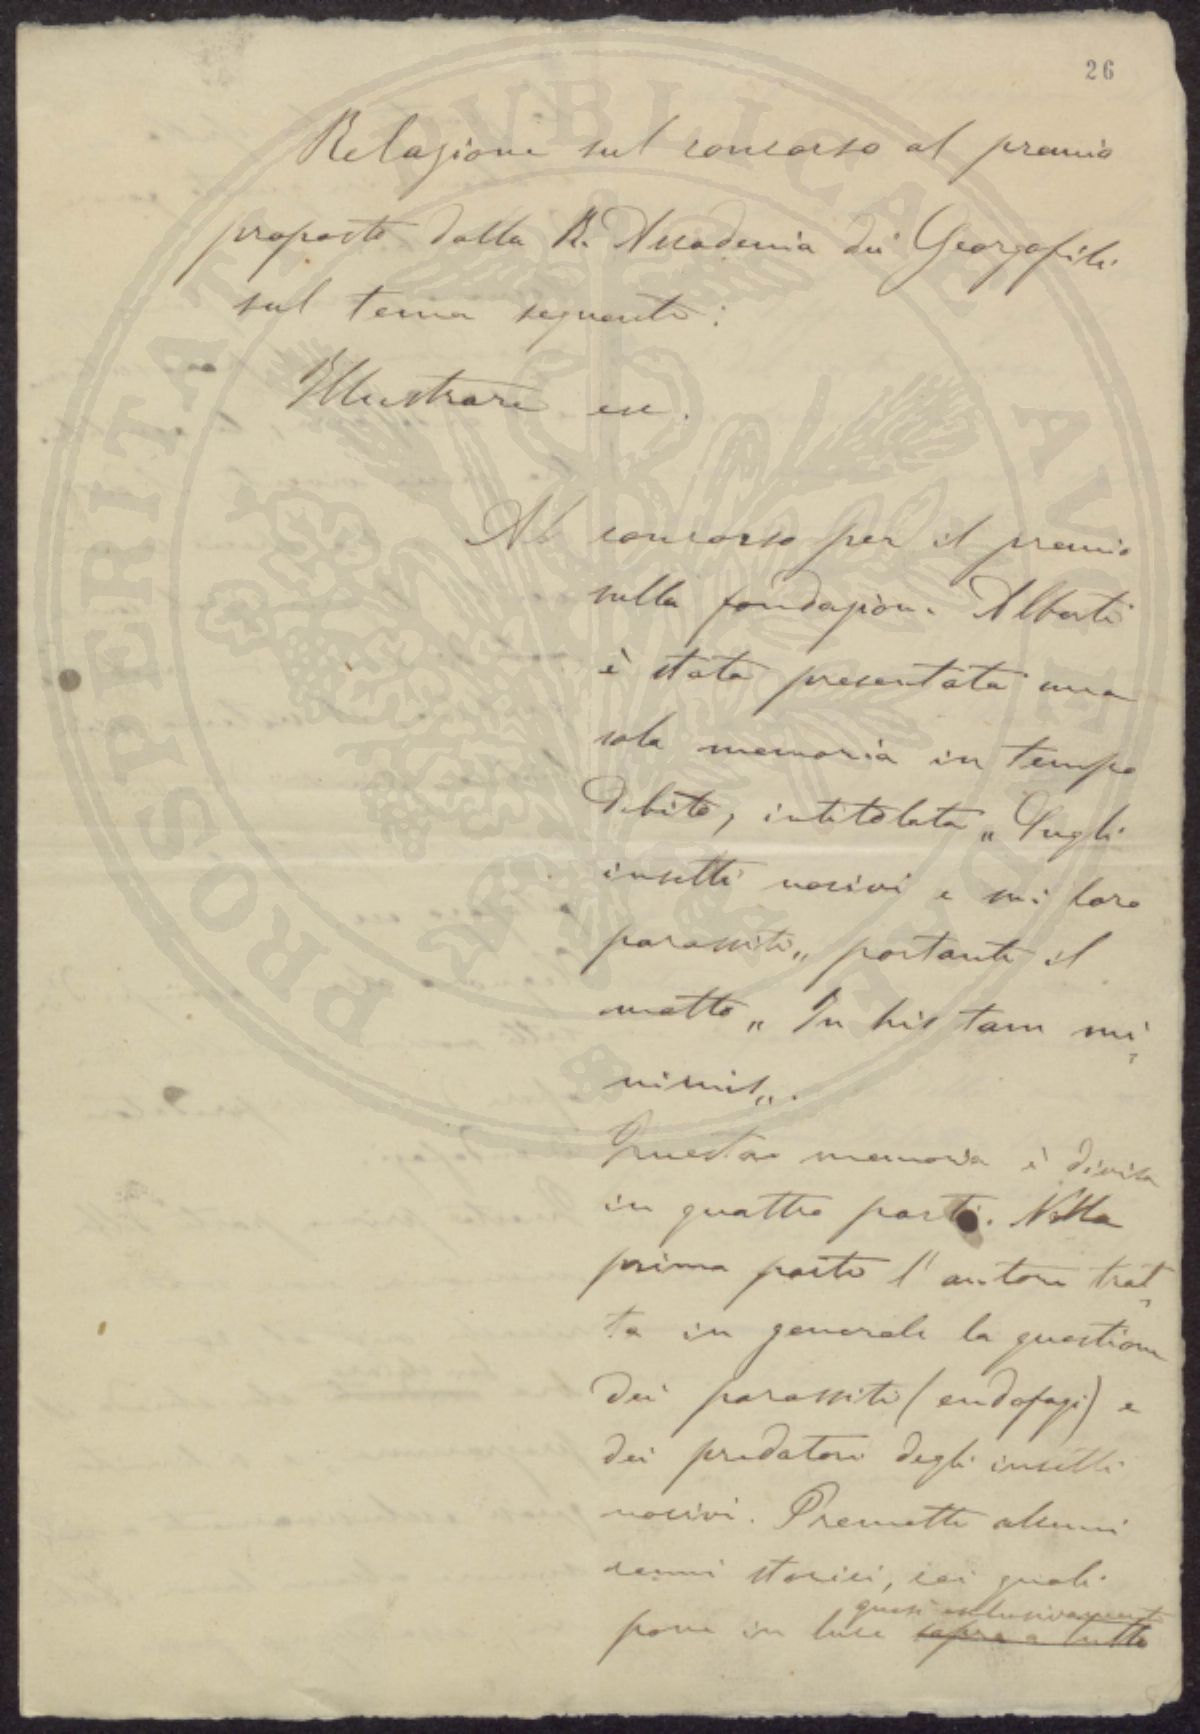 26
Relazione sul concorso al premio
proposto dalla R. Accademia dei Georgofili
sul tema seguente:
Illustrare ecc.
Al concorso per il premio
sulla fondazione Alberti
è stata presentata una
sola memoria in tempo
debito, intitolata „ Sugli
insetti nocivi e sui loro
parassiti „ portante il
motto „ In his tam mi-
nimis „.
Questa memoria è divisa
in quattro parti. Nella
prima parte l'autore trat-
ta in generale la questione
dei parassiti (endofagi) e
dei predatori degli insetti
nocivi. Premette alcuni
cenni storici, coi quali
quasi esclusivamente
pone in luce sopra a tutto
PROSPERITATI PVBLICAE AVGENDAE